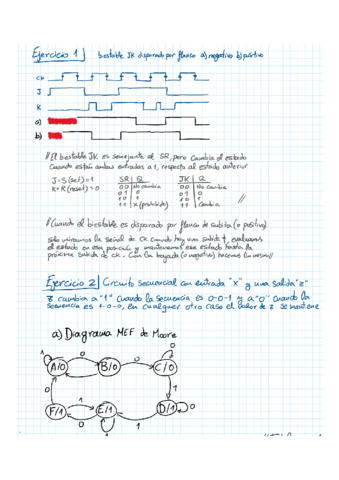 Ejercicio 1 | biestable JK disparado por flanco a) negativo b) positivo
CK
J
K
a)
b)
// El biestable JK es semejante al SR, pero cambia el estado
cuando están ambas entradas a 1, respecto al estado anterior
J=S (set)=1
K=R (reset)=0
SR | Q
00 | No cambia
01 | 0
10 | 1
11 | X (prohibido)
JK | Q
00 | No cambia
01 | 0
10 | 1
11 | Cambia
//
// Cuando el biestable es disparado por flanco de subida (o positivo)
solo miramos la señal de CK cuando hay una subida ↑, evaluamos
el estado en esa posición y mantenemos ese estado hasta la
próxima subida de ck. Con la bajada (o negativo) hacemos lo mismo //
Ejercicio 2 | Circuito secuencial con entrada "x" y una salida "z"
z cambia a "1" cuando la secuencia es 0-0-1 y a "0" cuando la
secuencia es 1-0-0, en cualquier otro caso el valor de z se mantiene
a) Diagrama MEF de Moore
1 0 0 0
A/0 B/0 C/0
1
0 1
F/1 0 E/1 D/1 0
0 1